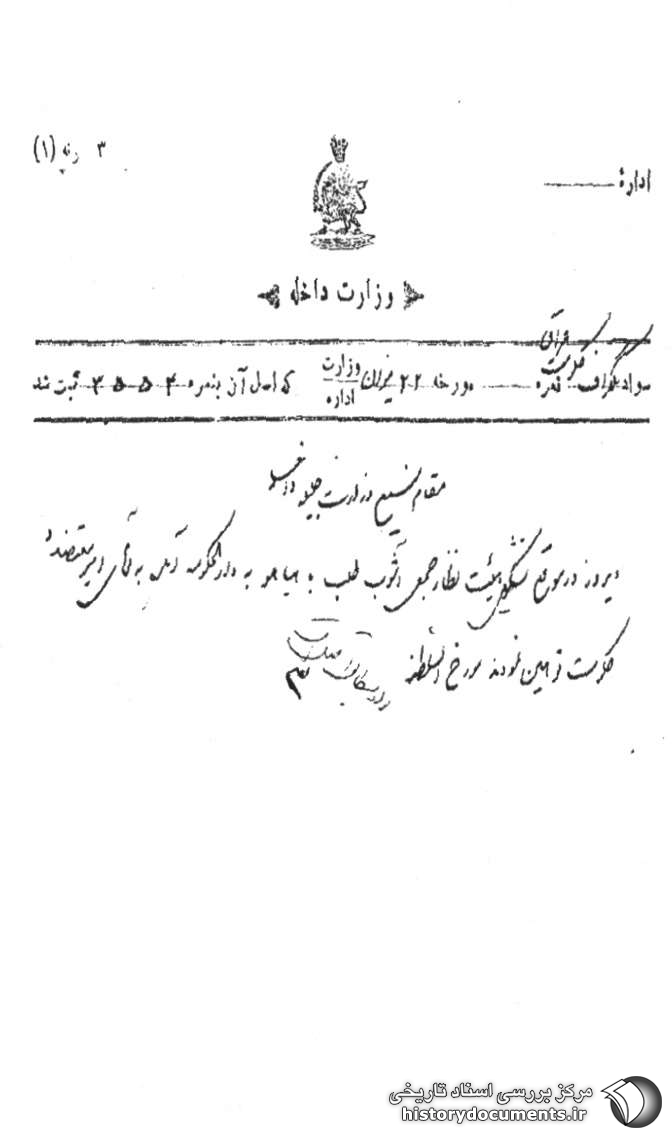 ادارهٔ
۳ رنه (۱)
وزارت داخله
سواد تلگراف حکومت عراق نمره مورخه ۲۲ میزان وزارت اداره که اصل آن بنمره ۳۵۵۴ ثبت شد
مقام منیع وزارت جلیله داخله
دیروز در موقع تشکیل هیئت نظار جمعی آشوب طلب با هیاهو به دارالحکومه آمده به آقای
حکومت توهین نمودند مورخ السلطنه
مرکز بررسی اسناد تاریخی
historydocuments.ir